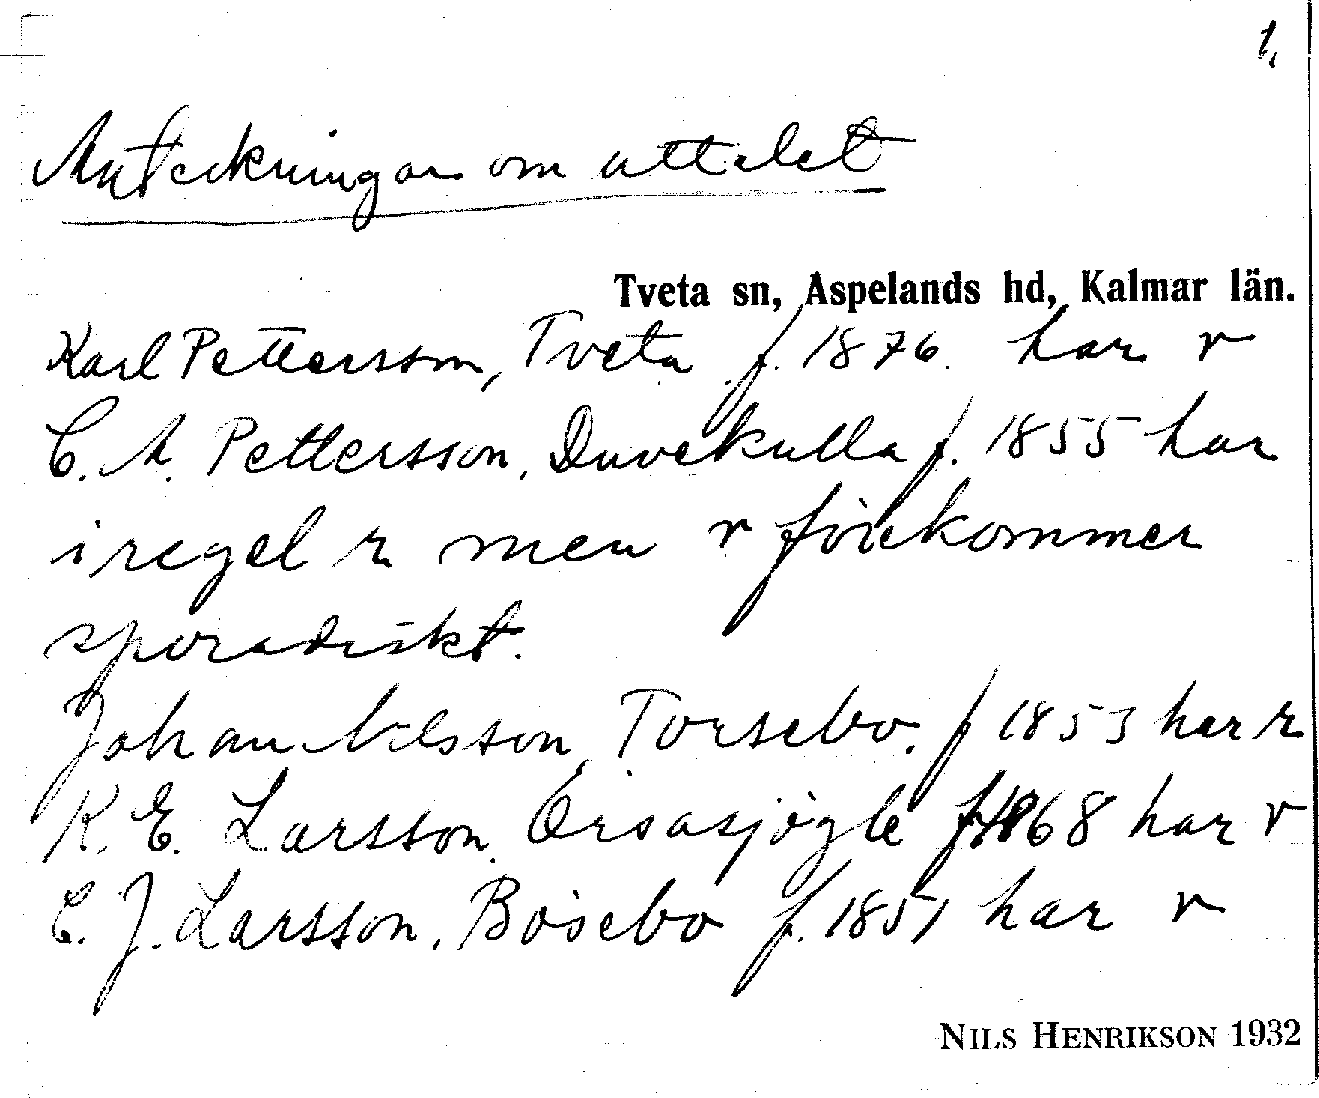 1,
Anteckningar om uttalet
Tveta sn, Aspelands hd, Kalmar län.
Karl Pettersson, Tveta f. 1876. har v
C. A. Pettersson, Duvekulla f. 1855 har
i regel r men v förekommer
sporadiskt.
Johan Nilsson, Torsebo. f 1853 har r
K. E. Larsson, Örsasjögle f. 1868 har v
C. J. Larsson, Bösebo f. 1851 har v
NILS HENRIKSON 1932